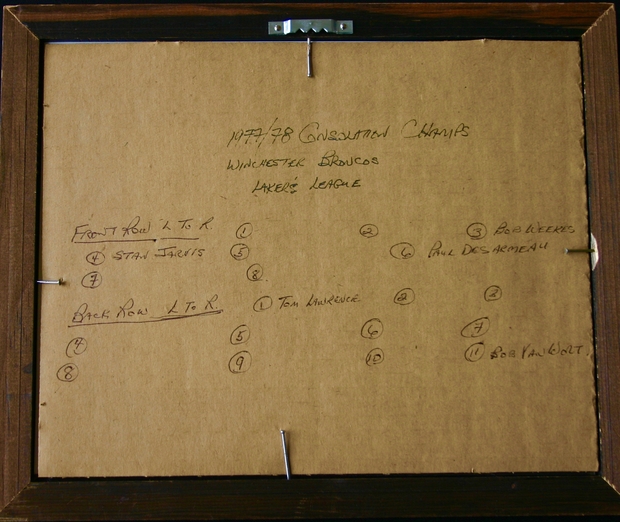 1977/78 CONSOLATION CHAMPS
WINCHESTER BRONCOS
LAKER'S LEAGUE
FRONT ROW L TO R ① ② ③ BOB WEEKES
④ STAN JARVIS ⑤ ⑥ PAUL DESARMEAU
⑦ ⑧
BACK ROW L TO R. ① TOM LAWRENCE ② ③
④ ⑤ ⑥ ⑦
⑧ ⑨ ⑩ ⑪ BOB VAN